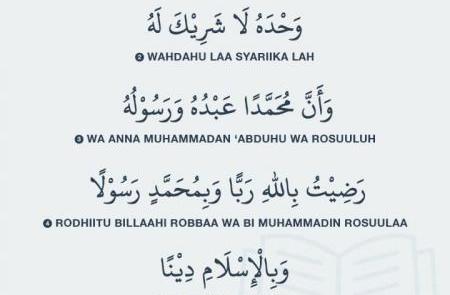 وَحْدَهُ لَا شَرِيْكَ لَهُ
2 WAHDAHU LAA SYARIIKA LAH
وَأَنَّ مُحَمَّدًا عَبْدُهُ وَرَسُوْلُهُ
3 WA ANNA MUHAMMADAN ‘ABDUHU WA ROSUULUH
رَضِيْتُ بِاللهِ رَبًّا وَبِمُحَمَّدٍ رَسُوْلًا
4 RODHIITU BILLAAHI ROBBAA WA BI MUHAMMADIN ROSUULAA
وَبِالْإِسْلَامِ دِيْنًا